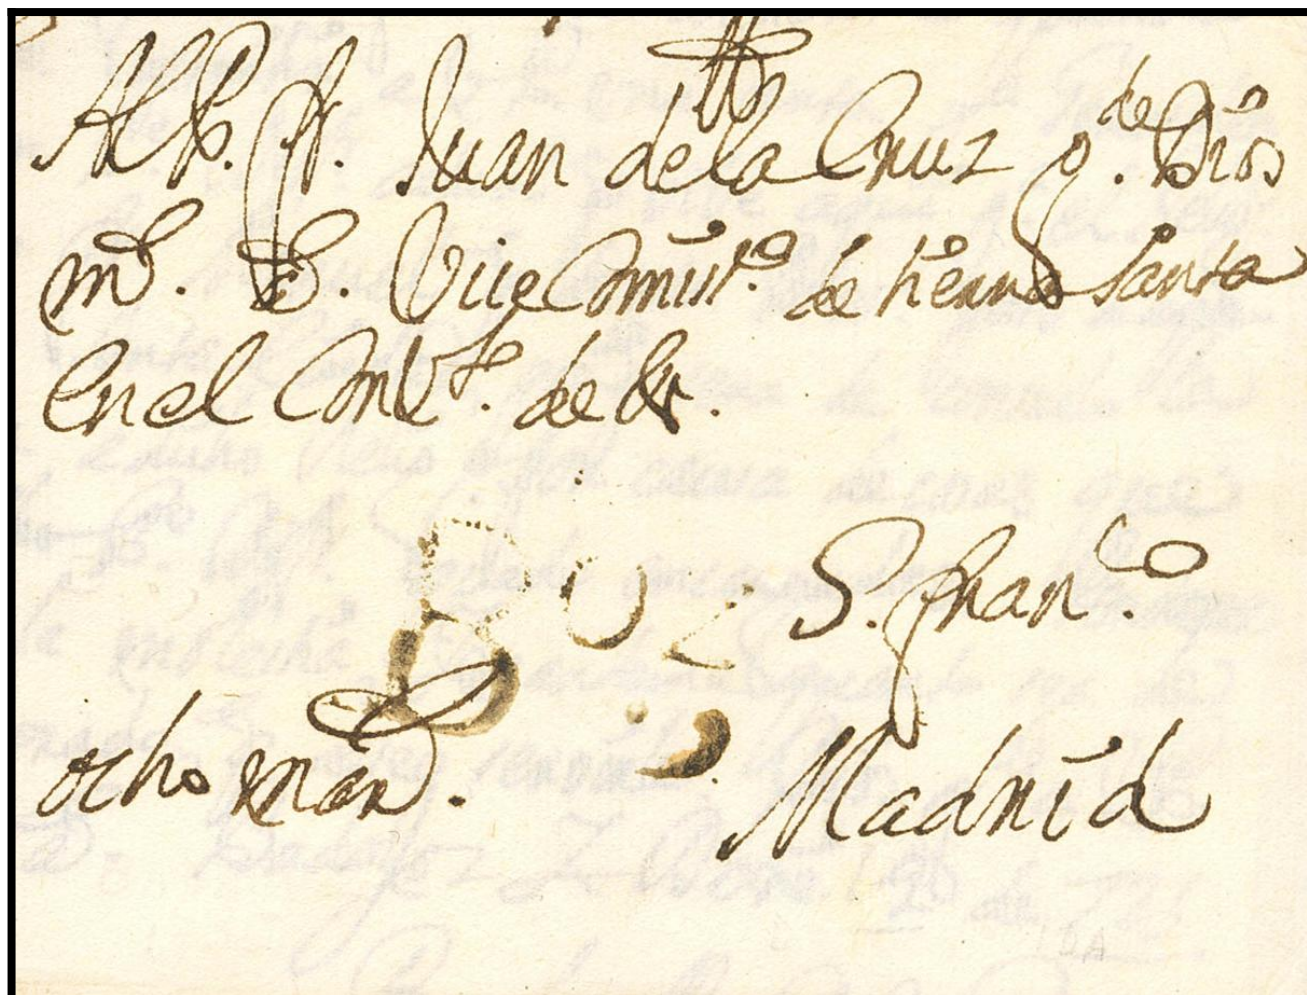 Al P. fr. Juan de la Cruz q.^de Dios
m.^s a.^s Vice Comis.^o de tierra santa
En el Conv.^to de
S. Fran.^co
ocho mar.^s
Madrid